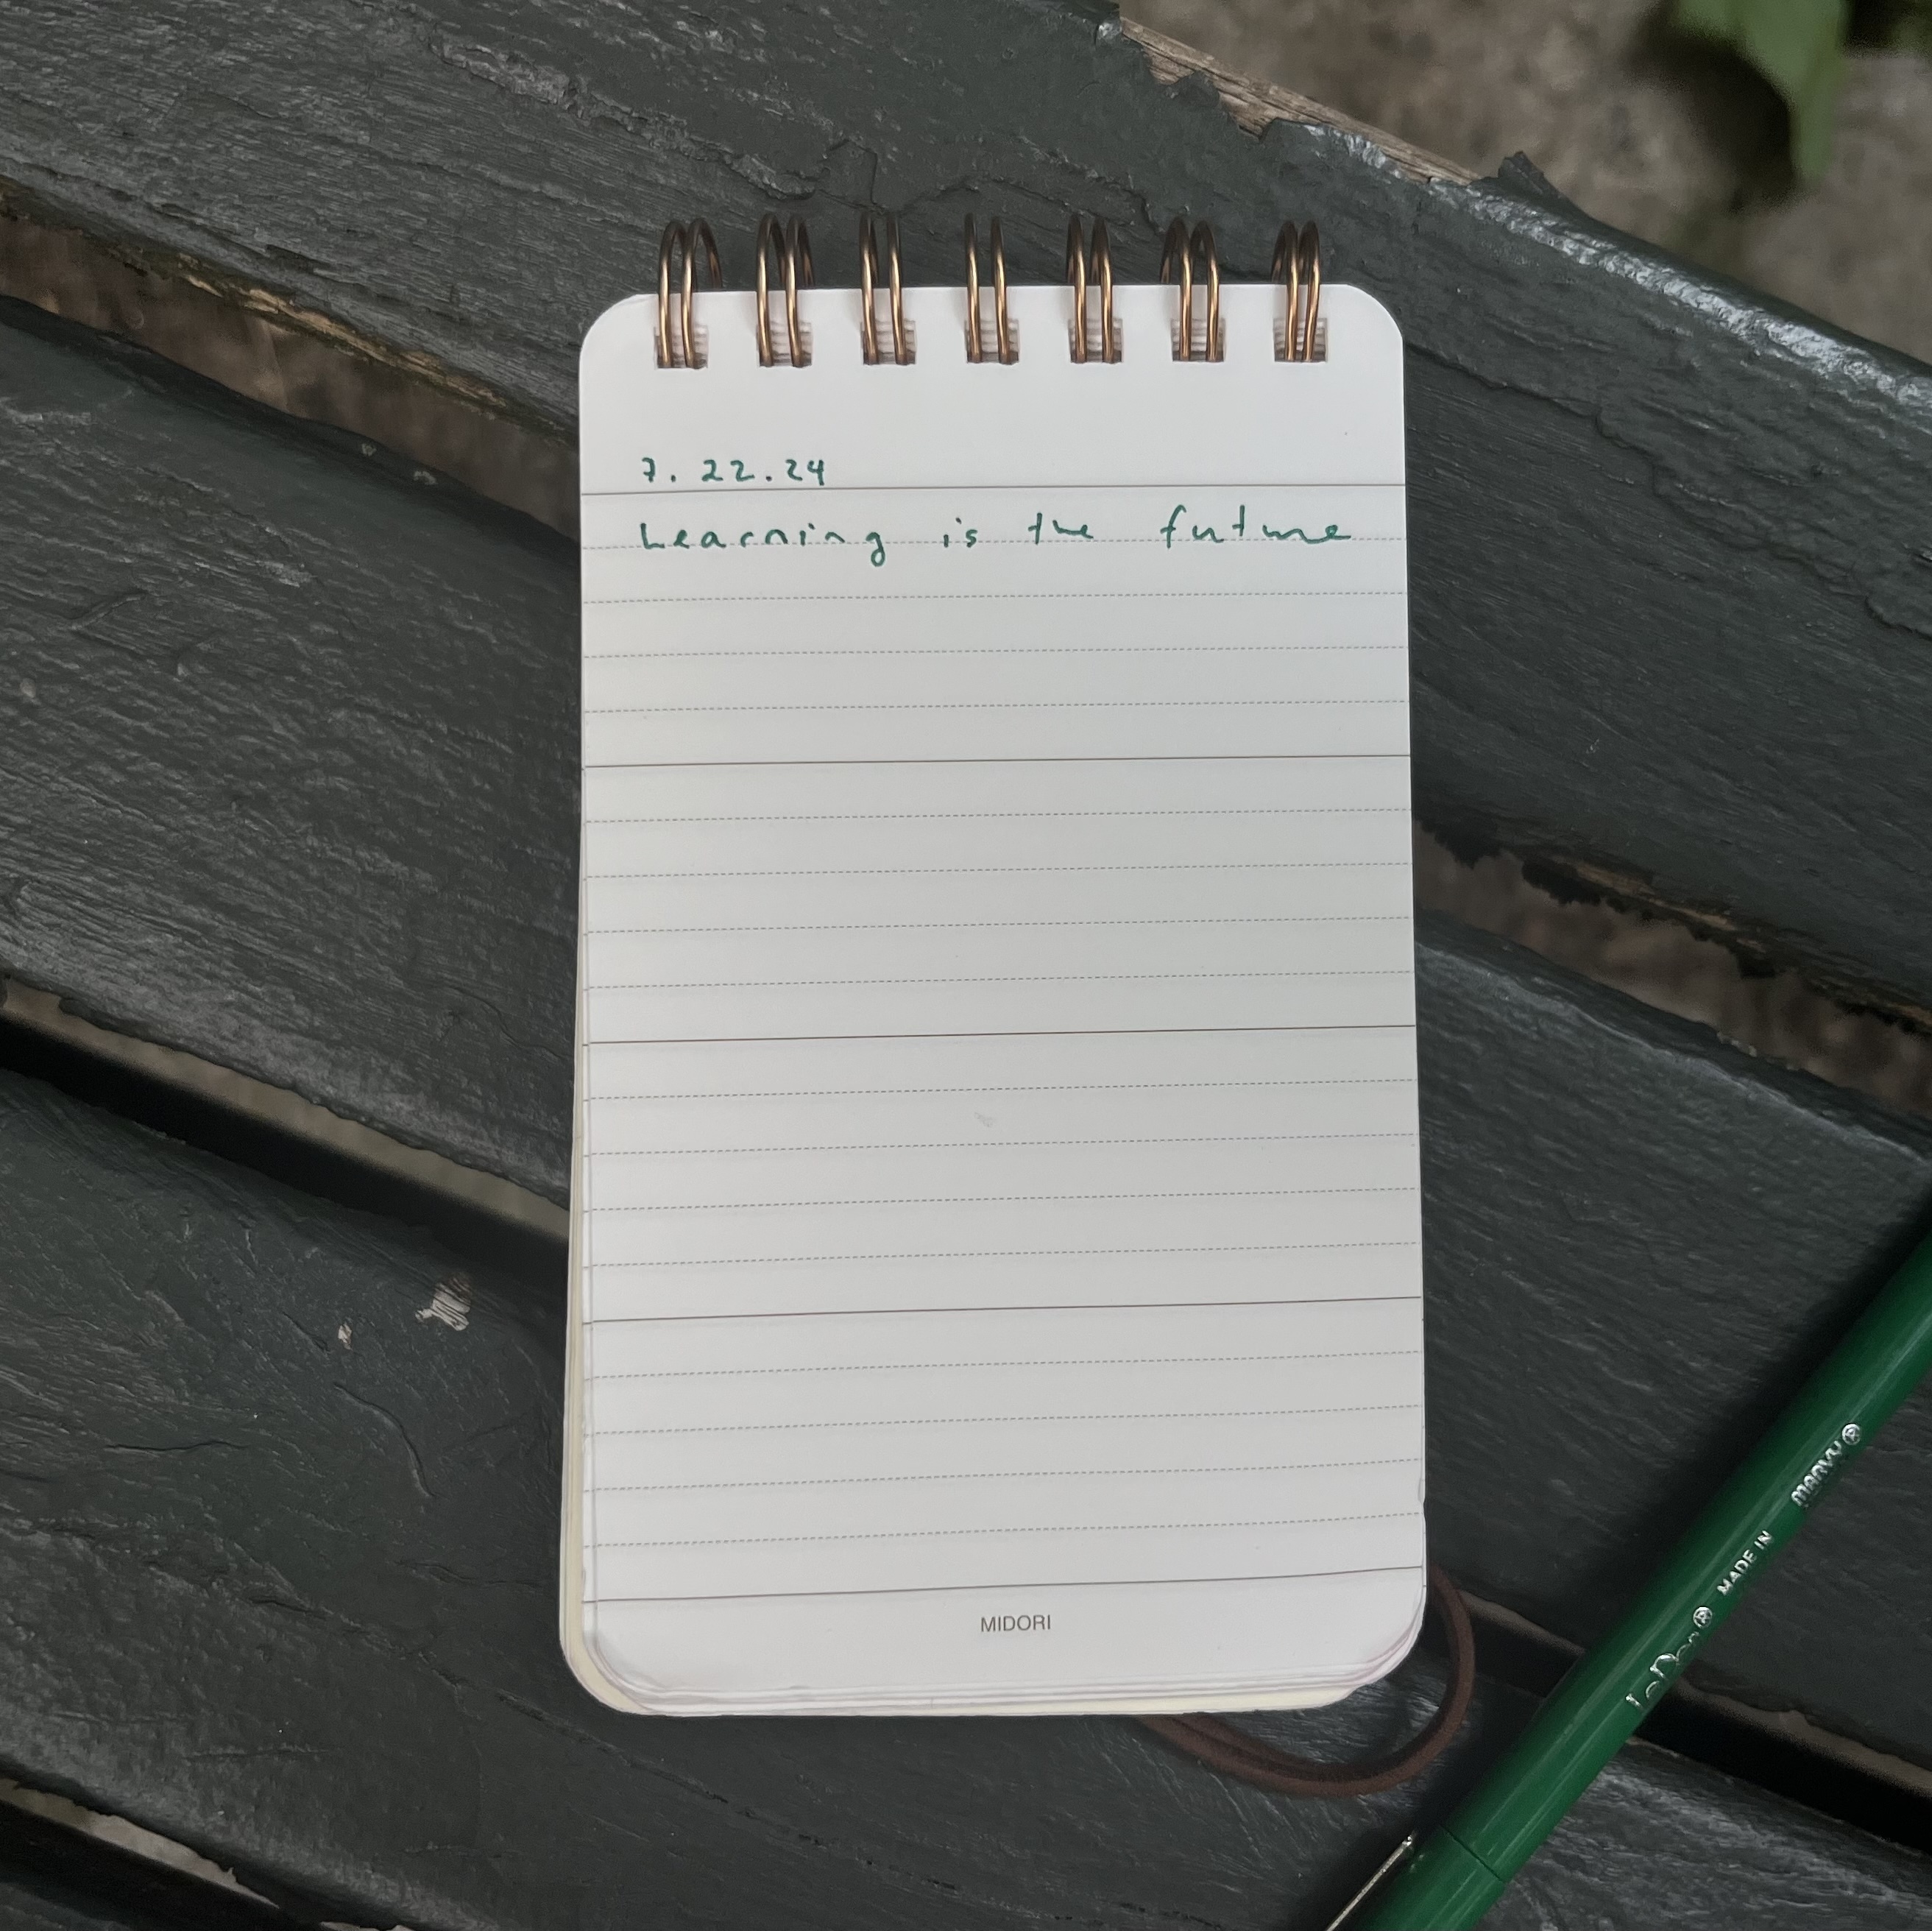 7. 22.24
Learning is the future
MIDORI
LePen® MADE IN MARVY®